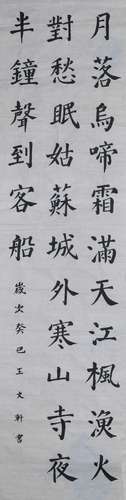 月落烏啼霜滿天江楓漁火
對愁眠姑蘇城外寒山寺夜
半鐘聲到客船
歲次癸巳王文軒書